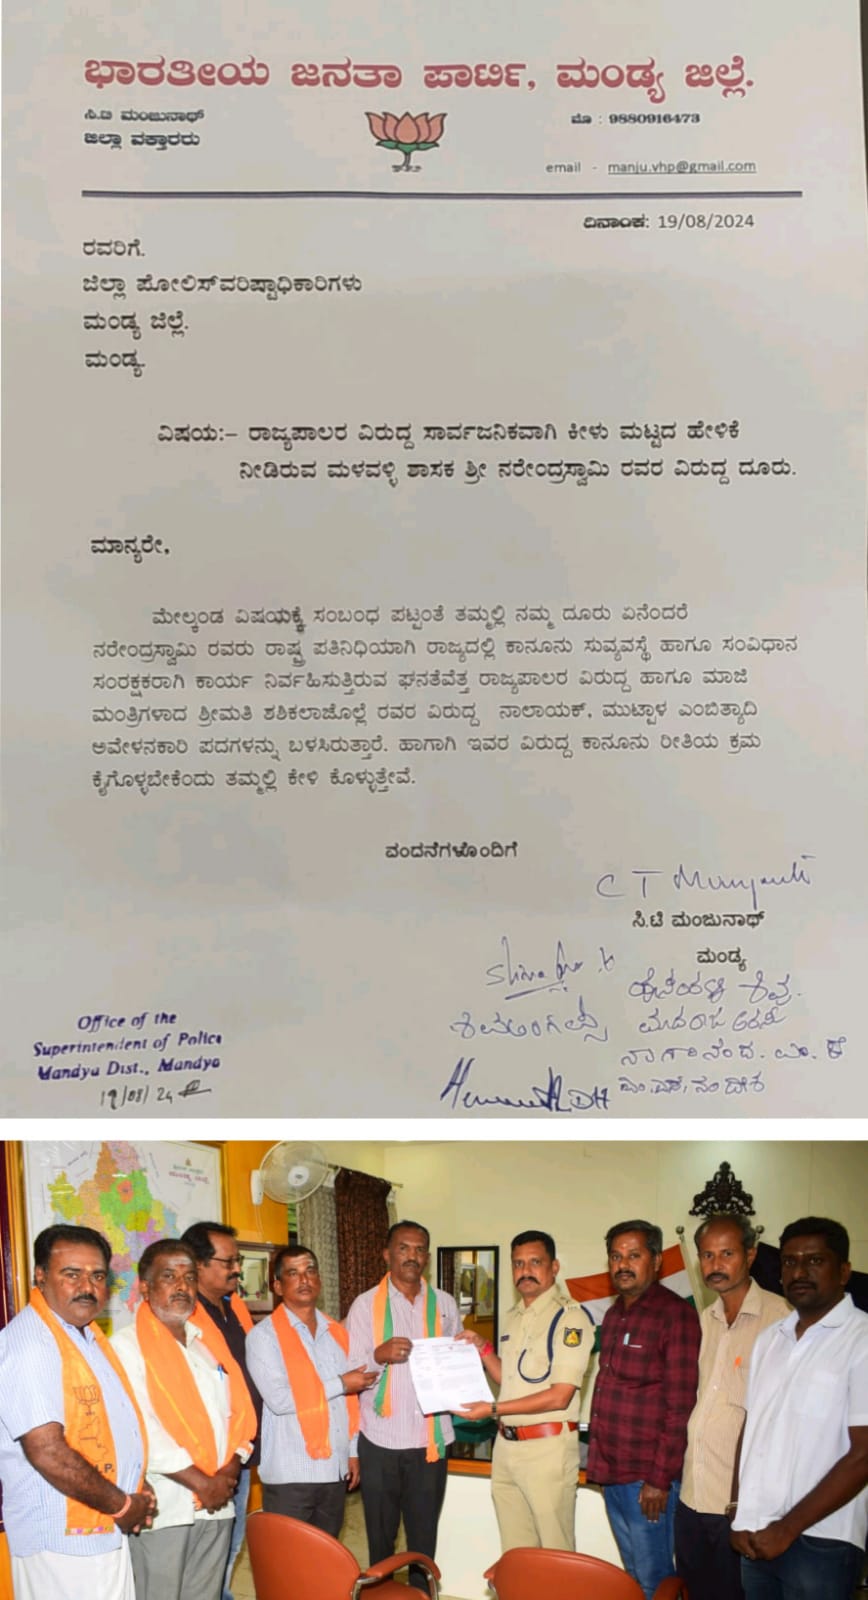 ಭಾರತೀಯ ಜನತಾ ಪಾರ್ಟಿ, ಮಂಡ್ಯ ಜಿಲ್ಲೆ.
ಸಿ.ಟಿ ಮಂಜುನಾಥ್
ಜಿಲ್ಲಾ ವಕ್ತಾರರು
ಮೊ : 9880916473
email - manju.vhp@gmail.com
ದಿನಾಂಕ: 19/08/2024
ರವರಿಗೆ.
ಜಿಲ್ಲಾ ಪೋಲಿಸ್‌ವರಿಷ್ಟಾಧಿಕಾರಿಗಳು
ಮಂಡ್ಯ ಜಿಲ್ಲೆ.
ಮಂಡ್ಯ.
ವಿಷಯ:– ರಾಜ್ಯಪಾಲರ ವಿರುದ್ದ ಸಾರ್ವಜನಿಕವಾಗಿ ಕೀಳು ಮಟ್ಟದ ಹೇಳಿಕೆ
ನೀಡಿರುವ ಮಳವಳ್ಳಿ ಶಾಸಕ ಶ್ರೀ ನರೇಂದ್ರಸ್ವಾಮಿ ರವರ ವಿರುದ್ದ ದೂರು.
ಮಾನ್ಯರೇ,
ಮೇಲ್ಕಂಡ ವಿಷಯಕ್ಕೆ ಸಂಬಂಧ ಪಟ್ಟಂತೆ ತಮ್ಮಲ್ಲಿ ನಮ್ಮ ದೂರು ಏನೆಂದರೆ
ನರೇಂದ್ರಸ್ವಾಮಿ ರವರು ರಾಷ್ಟ್ರ ಪತಿನಿಧಿಯಾಗಿ ರಾಜ್ಯದಲ್ಲಿ ಕಾನೂನು ಸುವ್ಯವಸ್ಥೆ ಹಾಗೂ ಸಂವಿಧಾನ
ಸಂರಕ್ಷಕರಾಗಿ ಕಾರ್ಯ ನಿರ್ವಹಿಸುತ್ತಿರುವ ಘನತೆವೆತ್ತ ರಾಜ್ಯಪಾಲರ ವಿರುದ್ದ ಹಾಗೂ ಮಾಜಿ
ಮಂತ್ರಿಗಳಾದ ಶ್ರೀಮತಿ ಶಶಿಕಲಾಜೊಲ್ಲೆ ರವರ ವಿರುದ್ದ ನಾಲಾಯಕ್, ಮುಟ್ಟಾಳ ಎಂಬಿತ್ಯಾದಿ
ಅವೇಳನಕಾರಿ ಪದಗಳನ್ನು ಬಳಸಿರುತ್ತಾರೆ. ಹಾಗಾಗಿ ಇವರ ವಿರುದ್ದ ಕಾನೂನು ರೀತಿಯ ಕ್ರಮ
ಕೈಗೊಳ್ಳಬೇಕೆಂದು ತಮ್ಮಲ್ಲಿ ಕೇಳಿ ಕೊಳ್ಳುತ್ತೇವೆ.
ವಂದನೆಗಳೊಂದಿಗೆ
C T Manjunath
ಸಿ.ಟಿ ಮಂಜುನಾಥ್
ಮಂಡ್ಯ
Office of the
Superintendent of Police
Mandya Dist., Mandya
19/08/24